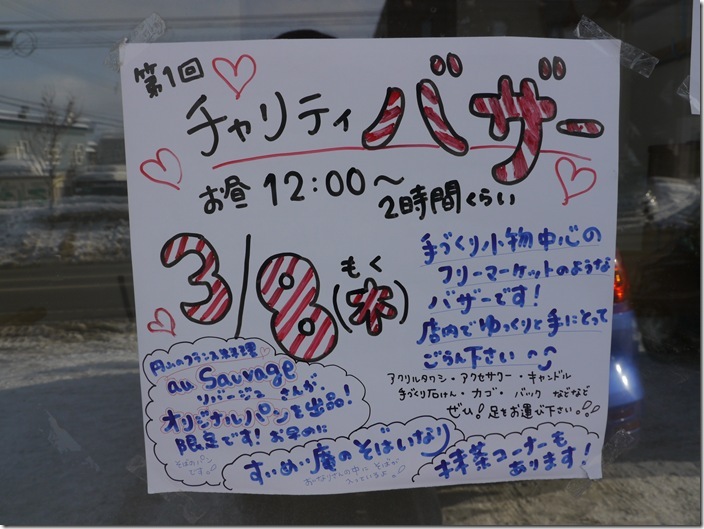 第1回
チャリティ バザー
お昼 12:00～
2時間くらい
3/8(木)
もく
手づくり小物中心の
フリーマーケットのような
バザーです!
店内でゆっくりと手にとって
ごらん下さい
アクリルタワシ・アクセサリー・キャンドル
手づくり石けん・カゴ・バック などなど
ぜひ!足をお運び下さい。
円山のフランス料理
au Sauvage
ソバージュさんが、
オリジナルパンを出品!
限定です!お早めに
そばのパン
です。
すいめい庵のそばいなり
おいなりさんの中に そばが
入っているよ。
抹茶コーナーも
あります!